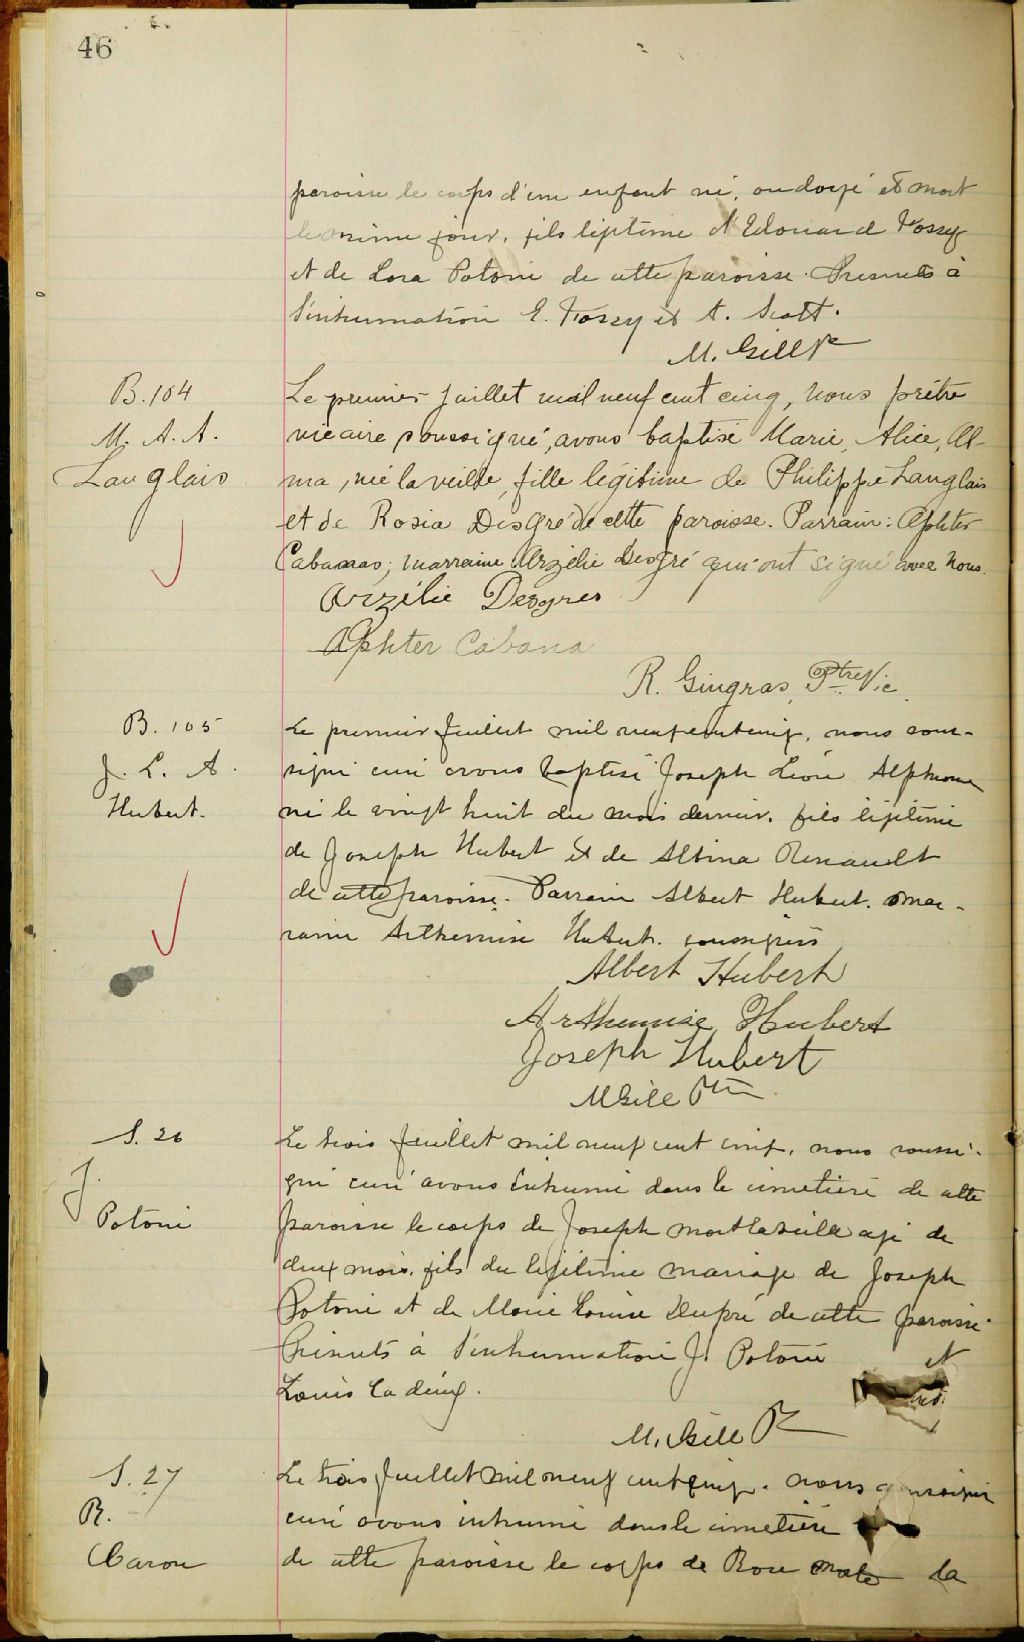 46
paroisse le corps d'un enfant né, ondoyé et mort
le même jour, fils légitime d'Edouard Fossy
et de Lora Potvin de cette paroisse. Présents à
l'inhumation E. Fossy et A. Scott.
M. Gill Ptre
B. 104
M. A. A.
Langlais
Le premier Juillet mil neuf cent cinq, nous prêtre
vicaire soussigné, avons baptisé Marie, Alice, Al-
ma, née la veille, fille légitime de Philippe Langlais
et de Rosia Desgré de cette paroisse. Parrain: Aphter
Cabanas; marraine Arzélie Desgré qui ont signé avec nous.
Arzélie Desgres
Aphter Cabana
R. Gingras, Ptre Vic
B. 105
J. L. A.
Hubert.
Le premier Juillet mil neuf cent cinq, nous sous-
signé curé avons baptisé Joseph Léon Alphonse
né le vingt huit du mois dernier, fils légitime
de Joseph Hubert et de Albina Renault
de cette paroisse. Parrain Albert Hubert. mar-
raine Arthemise Hubert. soussignés
Albert Hubert
Arthemise Hubert
Joseph Hubert
M Gill Ptre
S. 26
J.
Potvin
Le trois Juillet mil neuf cent cinq, nous soussi-
gné curé avons inhumé dans le cimetière de cette
paroisse le corps de Joseph mort la veille agé de
deux mois, fils du légitime mariage de Joseph
Potvin et de Marie Louise Dupré de cette paroisse.
Présents à l'inhumation J. Potvin et
Louis
M. Gill Ptre
S. 27
R.
Caron
Le trois Juillet mil neuf cent cinq, nous soussigné
curé avons inhumé dans le cimetière
de cette paroisse le corps de Rose morte la